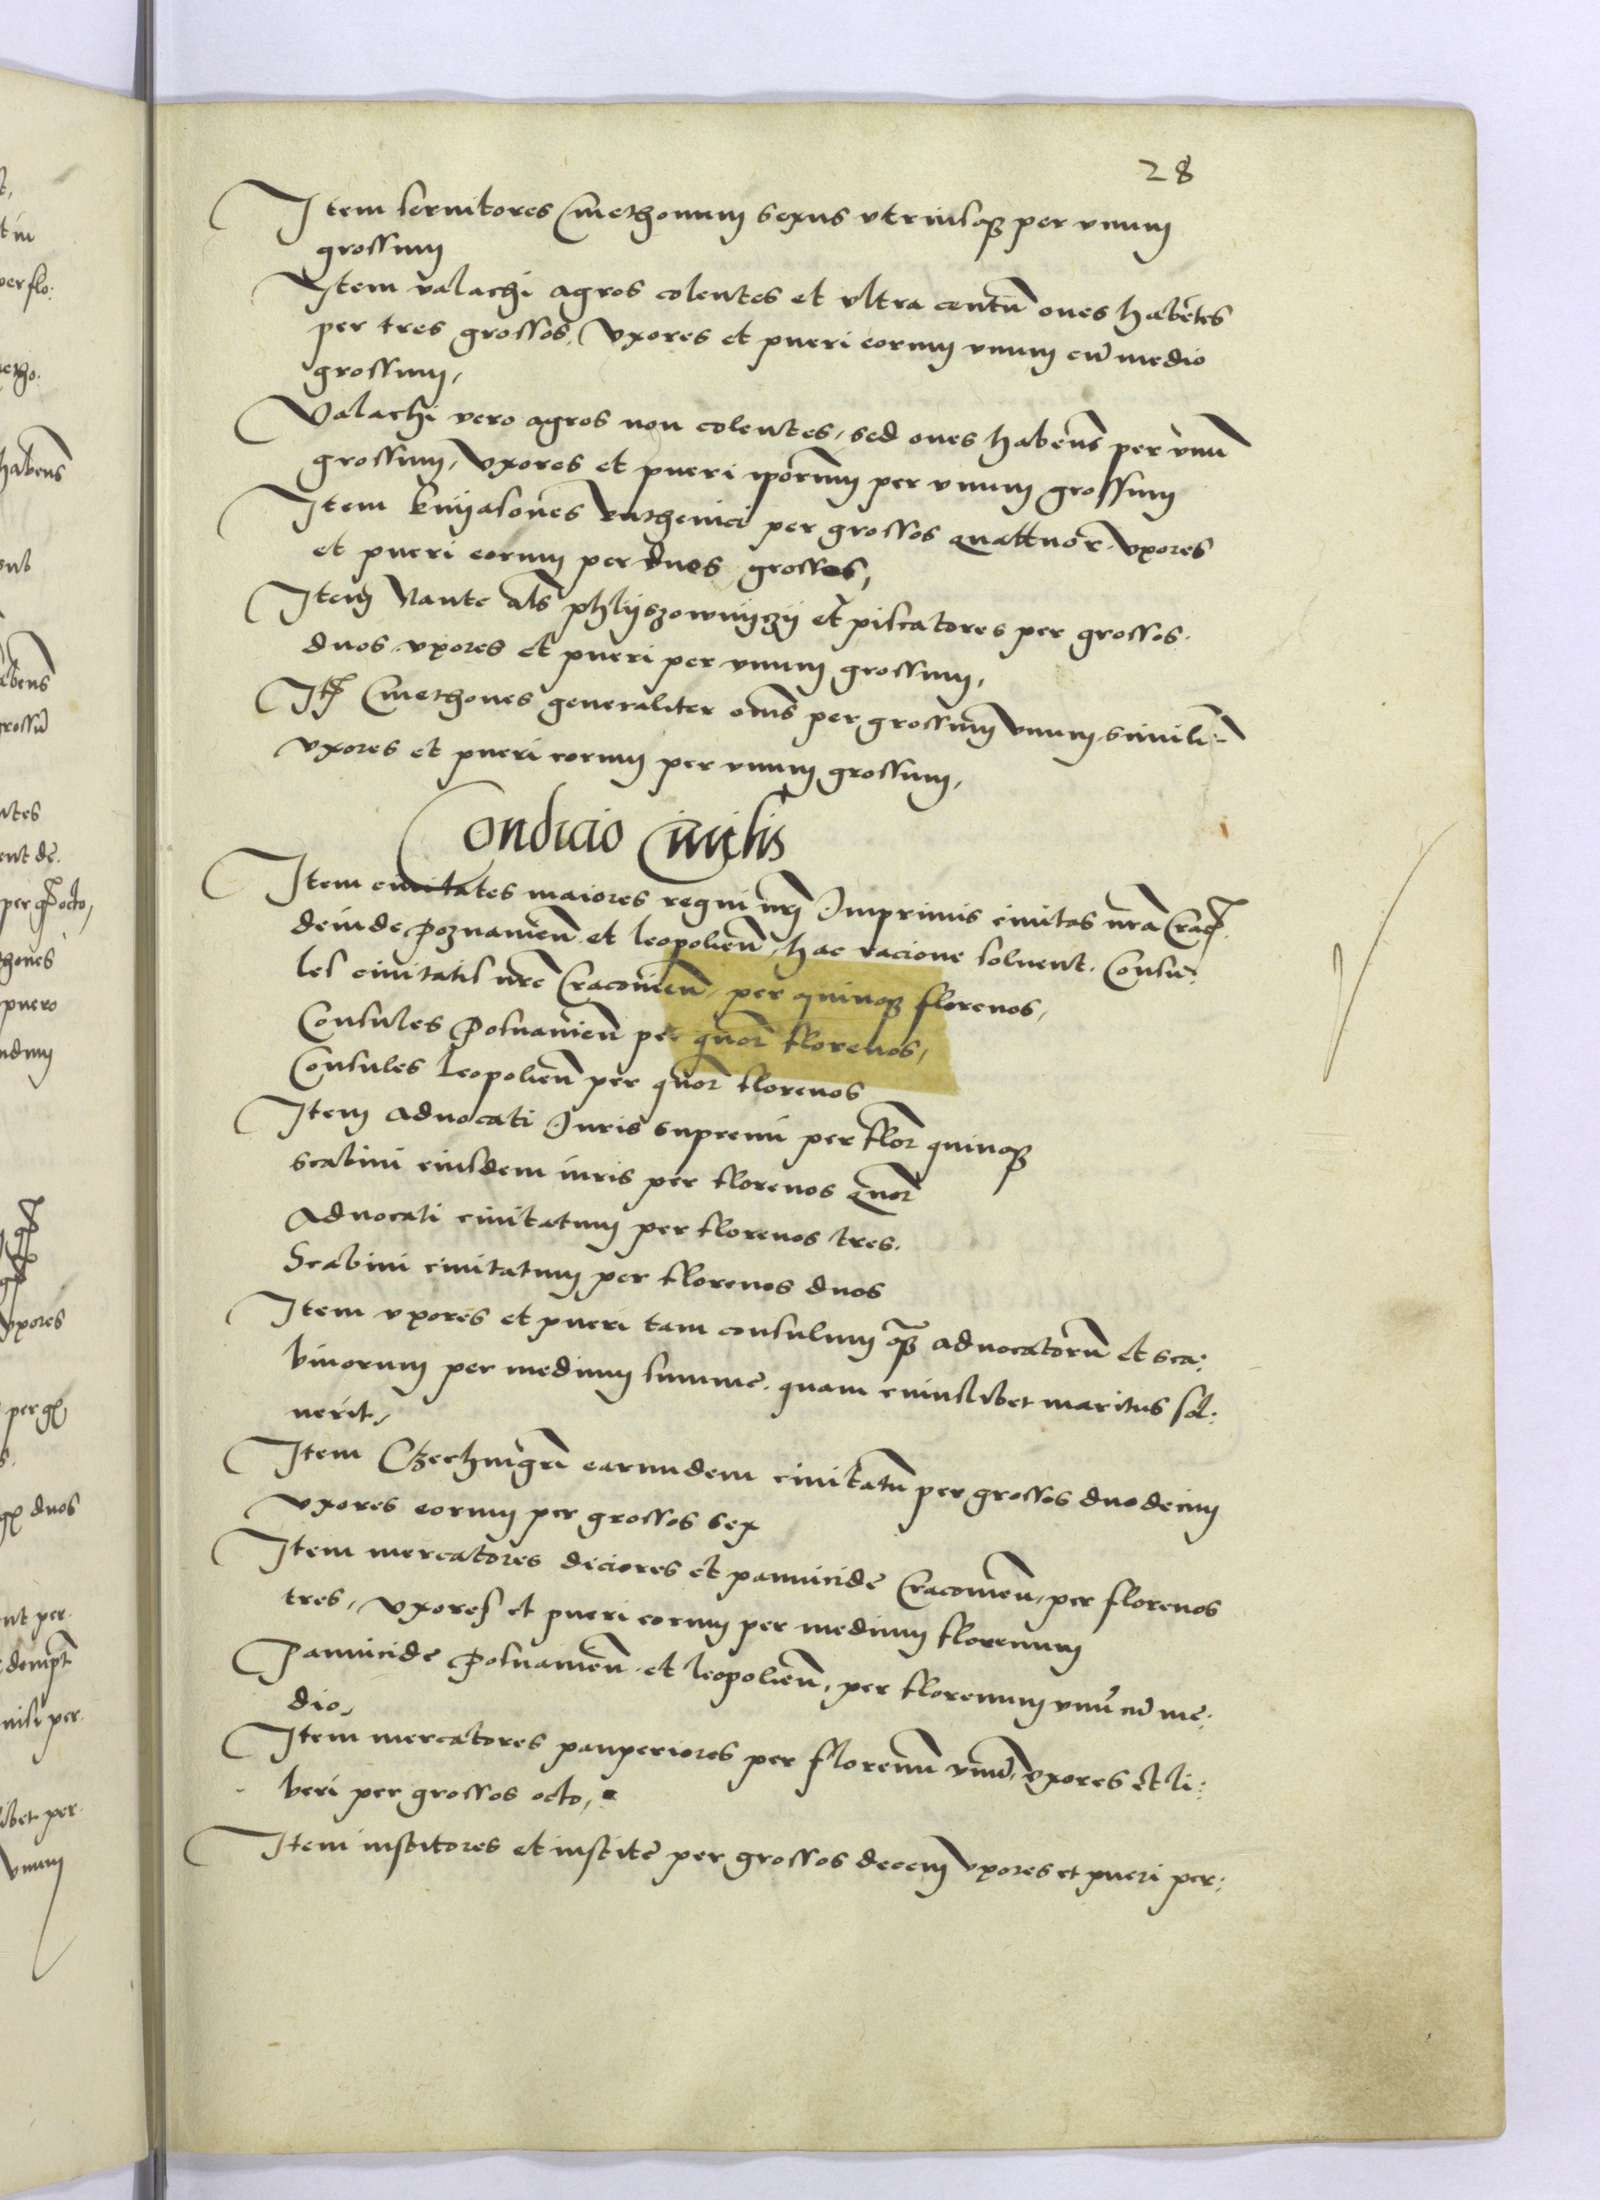 28
Item servitores Cmethonum sexus utriusq3 per unum
grossum
Item valachi agros colentes et ultra centū oves habētes
per tres grossos, Uxores et pueri eorum unum cū medio
grossum,
Valachi vero agros non colentes, sed oves habēns per unū
grossum, Uxores et pueri ipōrum per unum grossum
Item knijasones Ruthenici per grossos quattuor. Uxores
et pueri eorum per duos grossos,
Item Naute als phlijszownijczij et piscatores per grossos
duos uxores et pueri per unum grossum,
Itē Cmethones generaliter oms per grossum unum, simili:
uxores et pueri eorum per unum grossum,
Condicio Civilis
Item civitates maiores regni nrī Imprimis civitas nra Crac
deinde Poznanien̄ et leopolien̄, hac racione solvent. Consu:
les civitatis nrē Cracovien̄, per quinq3 florenos,
Consules Posnanien̄ per quor̄ florenos,
Consules Leopolien̄ per quor̄ florenos
Item advocati Iuris supremi per flor̄ quinq3
scabini eiusdem iuris per florenos quor̄
Advocati civitatum per florenos tres.
Scabini civitatum per florenos duos
Item uxores et pueri tam consulum q̄3 advocatorū et sca:
binorum per medium summe, quam cuiuslibet maritus sol:
verit,
Item Czechmgrī earundem civitatū per grossos duodecim
Uxores eorum per grossos sex
Item mercatores diciores et pannicide Cracovien̄, per florenos
tres, Uxores et pueri eorum per medium florenum
Pannicide Posnanien̄ et leopolien̄, per florenum unū cū me:
dio,
Item mercatores pauperiores per florenū unū, uxores et li:
beri per grossos octo,
Item institores et institē per grossos decem uxores et pueri per: